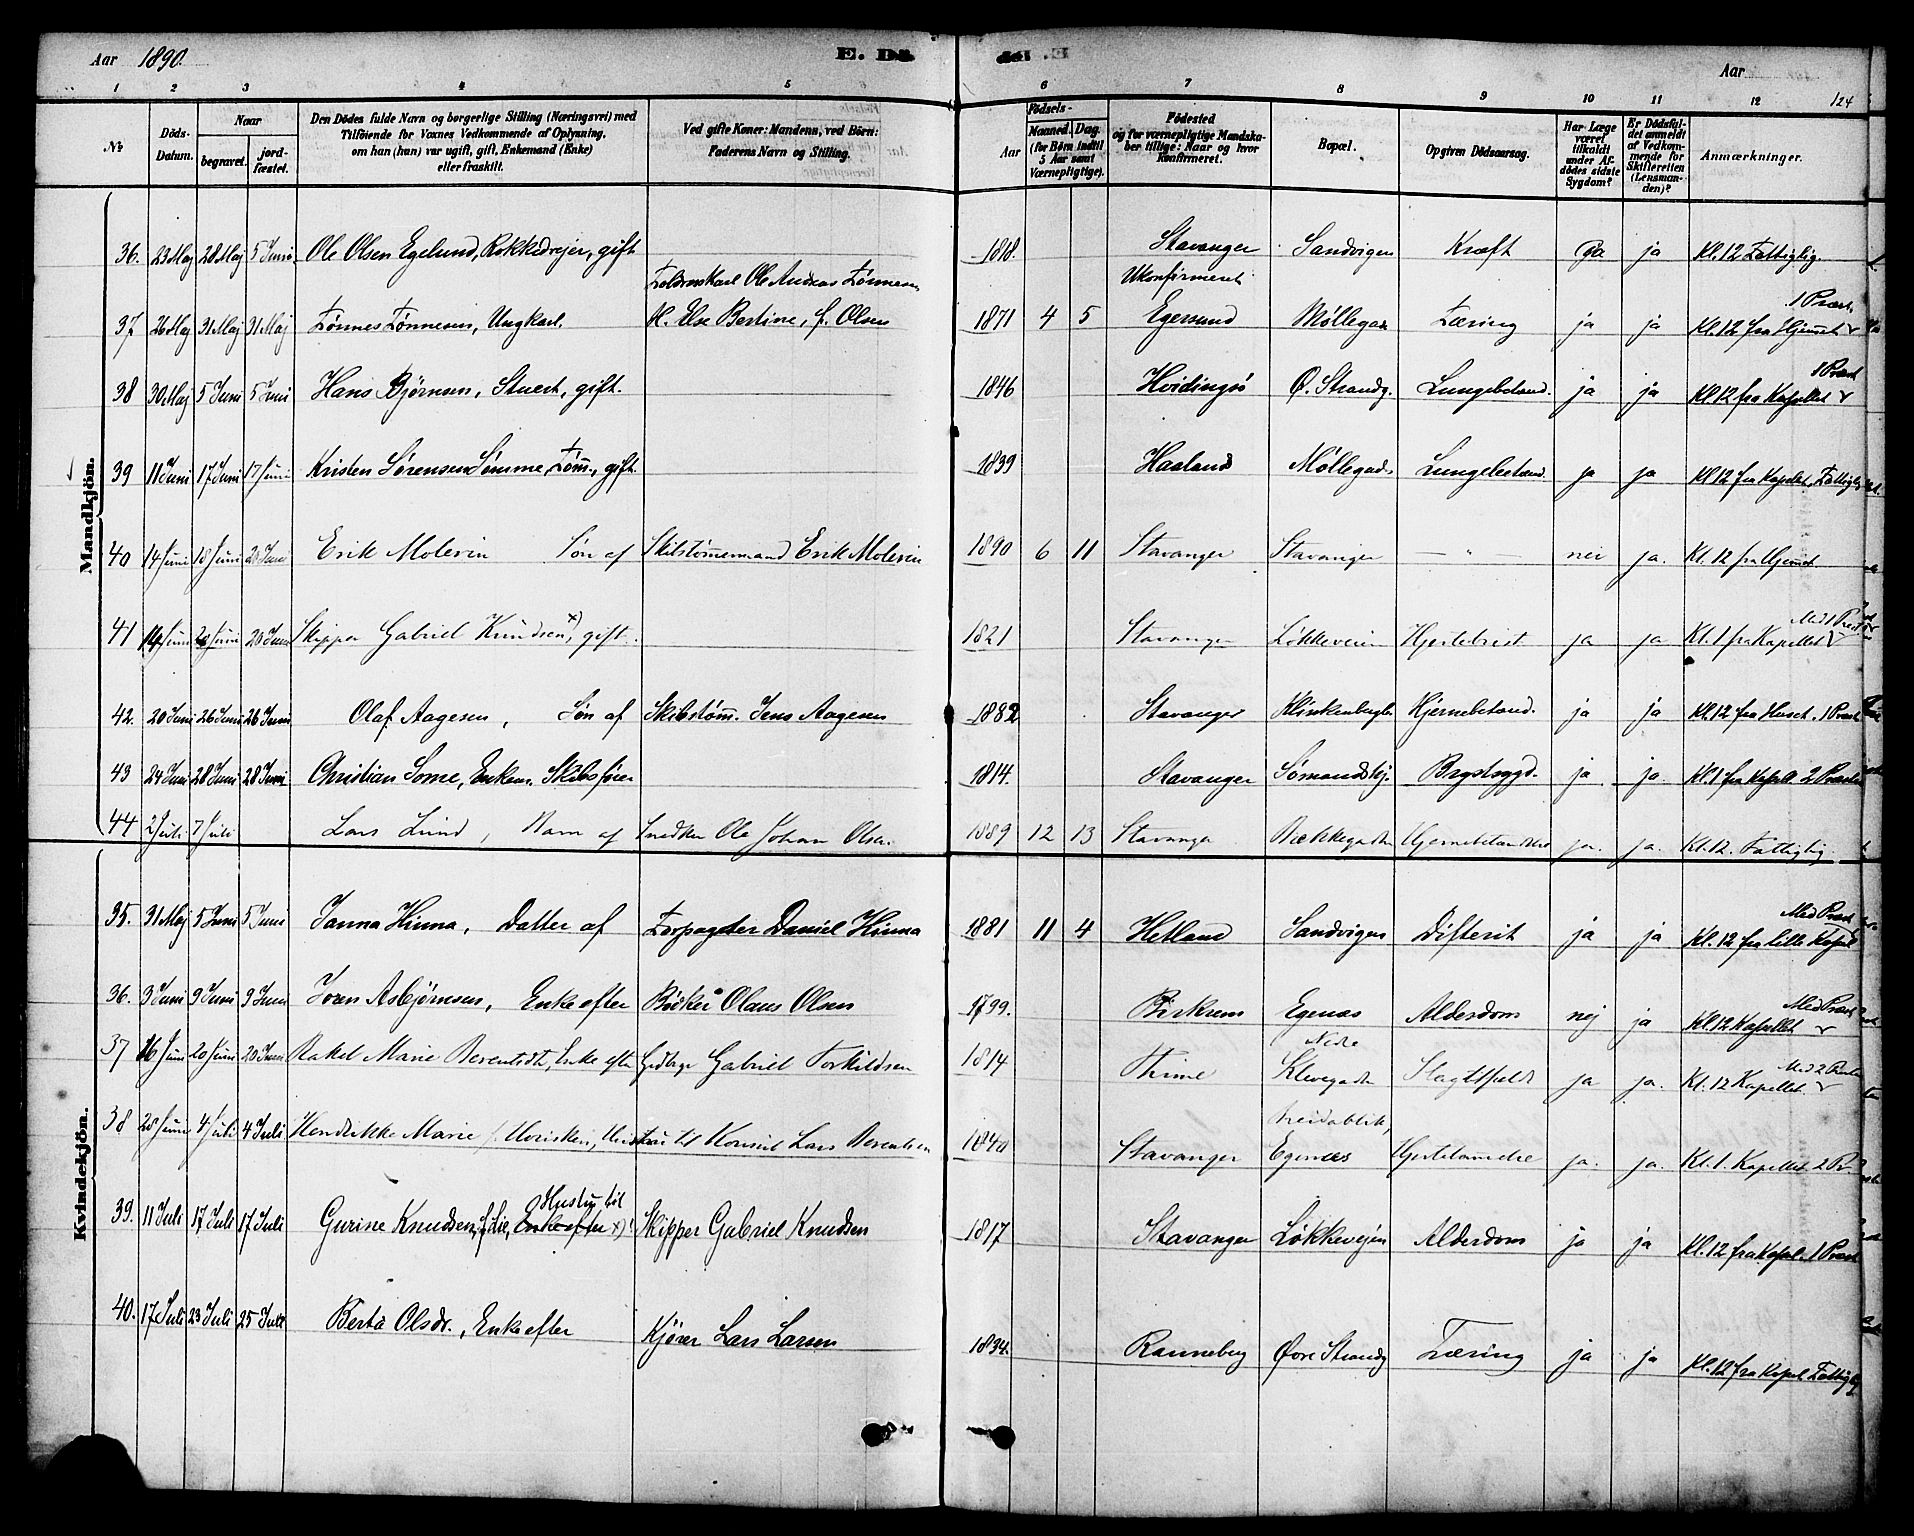 Aar 1890. E. Dø
Aar 124
1 2 3 4 5 6 7 8 9 10 11 12
№ Döds-Datum. Naar begravet. jordfæstet. Den Dödes fulde Navn og borgerlige Stilling (Næringsvei) med Tilföiende for Voxnes Vedkommende af Oplysning, om han (hun) var ugift, gift, Enkemand (Enke) eller fraskilt. Ved gifte Koner: Mandens, ved Börn: Faderens Navn og Stilling. Aar Födsels- Maaned. Dag. (for Börn indtil 5 Aar samt Værnepligtige). Födested og for værnepligtige Mandskaber tillige: Naar og hvor konfirmeret. Bopæl. Opgiven Dödsaarsag. Har Læge været tilkaldt under Afdödes sidste Sygdom? Er Dödsfaldet anmeldt af Vedkommende for Skifteretten (Lensmanden)? Anmærkninger.
Mandkjön.
36. 23 Maj 28 Maj 5 Juni Ole Olsen Egelund, Rokkedrejer, gift 1818. Stavanger Sandvigen Kræft ja ja Kl. 12 Fattiglig.
37 26 Maj 31 Maj 31 Maj Tönnes Tönnesen, Ungkarl. Toldrorskarl Ole Andreas Tönnesen H. Else Bertine, f. Olsen 1871 4 5 Ukonfirmeret Egersund Møllegad Tæring ja ja Kl. 12 fra Hjemmet 1 Præst
38 30 Maj 5 Juni 5 Juni Hans Bjørnsen, Stuert, gift. 1846 Hvidingsö Ø. Strandg. Lungebetænd. ja ja Kl 12 fra Kapellet 1 Præst
39 11 Juni 17 Juni 17 Juni Kristen Sørensen Sømme, Tøm., gift. 1839 Haaland Møllegade Lungebetænd. ja ja Kl 12 fra Kapellet, Fattiglig
40 14 Juni 18 Juni 20 Juni Erik Molevin Søn af Skibstømmermand Erik Molevin 1890 6 11 Stavanger Stavanger — " — nei ja. Kl. 12 fra Hjemmet
41 14 Juni 20 Juni 20 Juni Skipper Gabriel Knudsen x), gift. 1821 Stavanger Løkkeveien Hjertebrist. ja ja Kl. 1 fra Kapellet Med 1 Præst
42. 20 Juni 26 Juni 26 Juni Olaf Aagesen, Søn af Skibstøm. Jens Aagesen 1882 Stavanger Klinkenbergb. Hjernebetænd. ja ja Kl. 12 fra Huset. 1 Præst
43 24 Juni 28 Juni 28 Juni Christian Some, Enkem. Skibsfører 1814. Stavanger Sømandshj. Brystsygd. ja ja. Kl. 1 fra Kapell. 2 Præster
44 2 Juli 7 Juli Lars Lund, Barn af Snedker Ole Johan Olsen. 1889 12 13 Stavanger Bækkegaden Hjernebetændelse ja. ja. Kl. 12. Fattiglig.
Kvindekjön.
35. 31 Maj 5 Juni 5 Juni Janna Hinna, Datter af Forpagter Daniel Hinna 1881 11 4 Hetland Sandvigen Difterit ja ja Kl. 12 fra lille Kapel Med Præst
36. 3 Juni 9 Juni 9 Juni Joren Asbjørnsen, Enke efter Bødker Olaus Olsen 1799. Birkrem Egenæs Alderdom nej ja Kl 12 Kapellet Med Præst
37 16 Juni 20 Juni 20 Juni Rakel Marie Berentsdt, Enke efter Gabriel Torkildsen 1814 Thime Nedre Klevegaden Slagtilfælde ja ja. Kl. 12 Kapellet. Med 2 Præster
38 28 Juni 4 Juli 4 Juli Hendrikke Marie f. Hustru til Konsul Lars Berentsen 1840 Stavanger Egenæs ja. ja. Kl. 1. Kapellet 2 Pr.
39. 11 Juli 17 Juli 17 Juli Gurine Knudsen, f. Lie, Enke efter Hustru til x) Skipper Gabriel Knudsen 1817 Stavanger Løkkevejen Alderdom ja ja Kl. 12 fra Kapel. 1 Præst
40. 17 Juli 23 Juli 25 Juli Berta Olsdr., Enke efter Kjører Lars Larsen 1834. Ranneberg Øvre Strandg Tæring ja ja Kl. 12 fra Kapel. Fattiglig